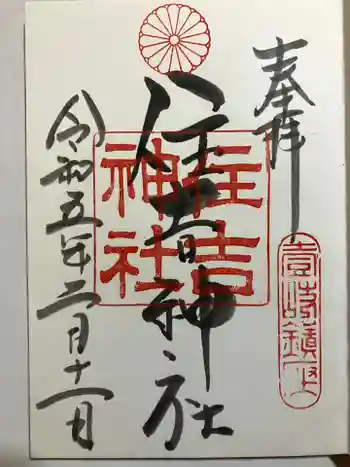 奉拝
壹岐鎮座
住吉神社
住吉神社
令和五年二月十一日